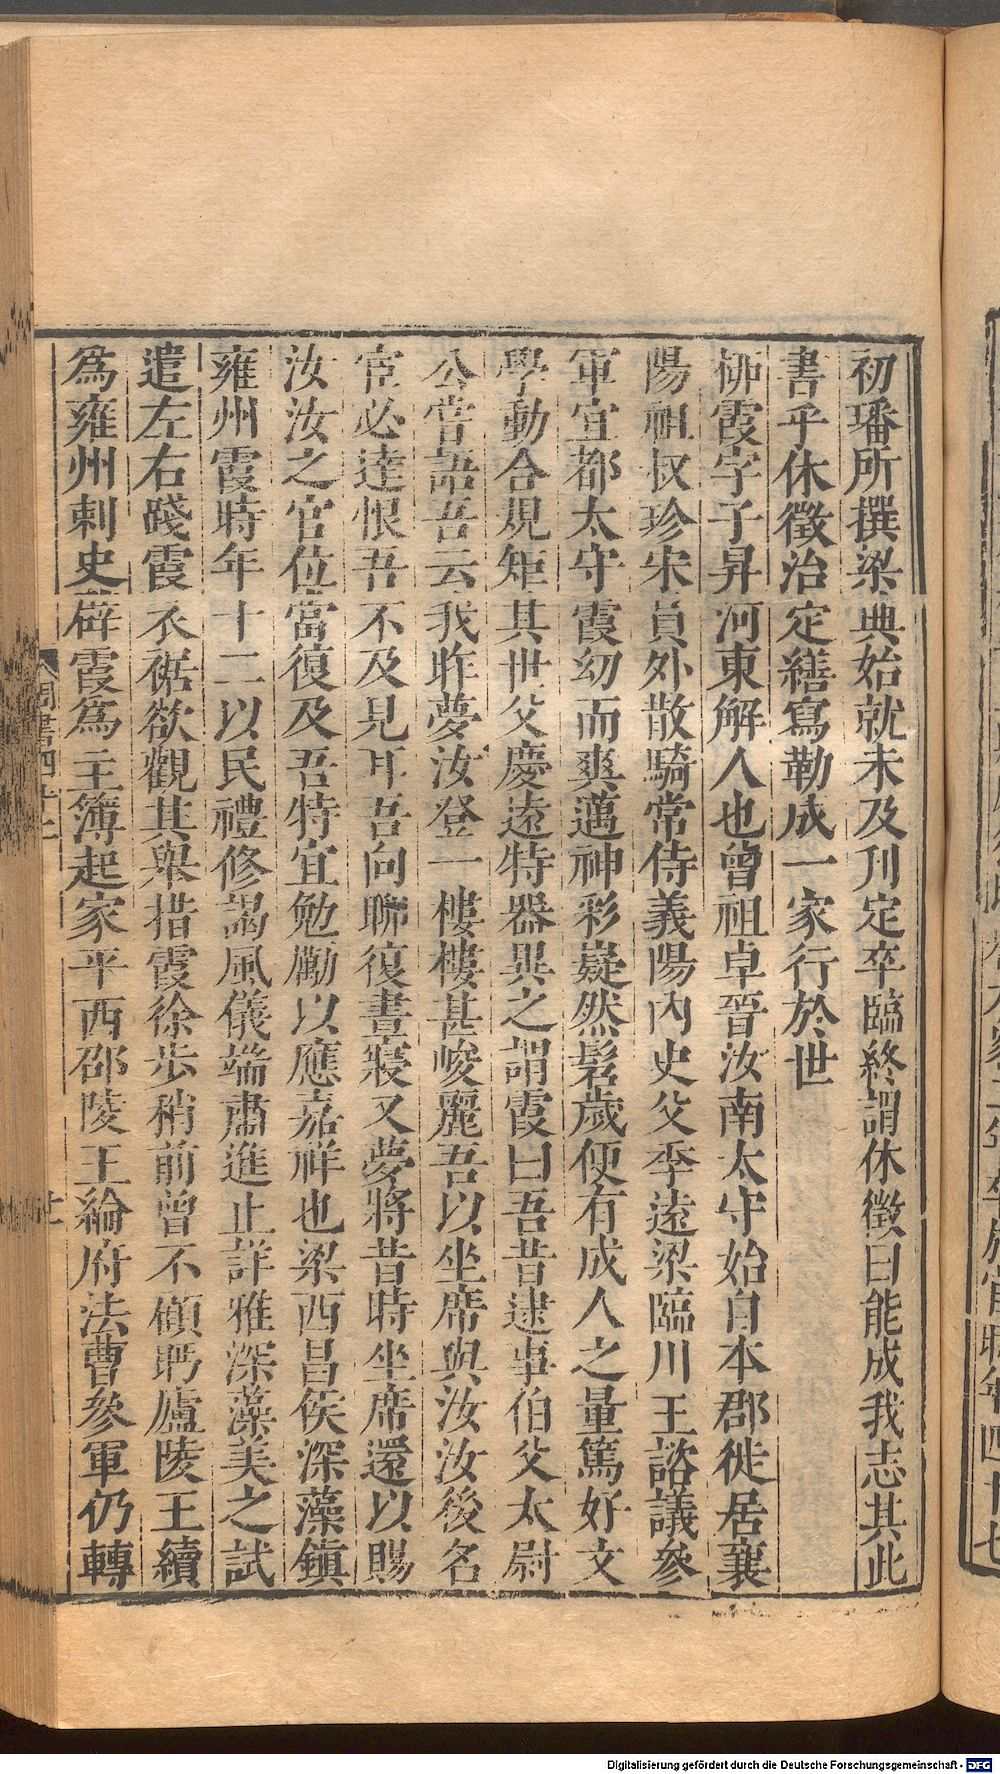 初璠所撰梁典始就未及刊定卒臨終謂休徵曰能成我志其此
書乎休徵治定繕寫勒成一家行於世
柳霞字子昇河東解人也曾祖卓晉汝南太守始自本郡徙居襄
陽祖叔珍宋員外散騎常侍義陽內史父季遠梁臨川王諮議參
軍宜都太守霞幼而爽邁神彩嶷然髫歲便有成人之量篤好文
學動合規矩其世父慶遠特器異之謂霞曰吾昔逮事伯父太尉
公嘗語吾云我昨夢汝登一樓樓甚峻麗吾以坐席與汝汝後名
宦必達恨吾不及見耳吾向聊復晝寢又夢將昔時坐席還以賜
汝汝之官位當復及吾特宜勉勵以應嘉祥也梁西昌侯深藻鎮
雍州霞時年十二以民禮修謁風儀端肅進止詳雅深藻美之試
遣左右踐霞衣裾欲觀其舉措霞徐步稍前曾不顧眄廬陵王續
為雍州刺史辟霞為主簿起家平西邵陵王綸府法曹參軍仍轉
周書四十二
Digitalisierung gefördert durch die Deutsche Forschungsgemeinschaft - DFG